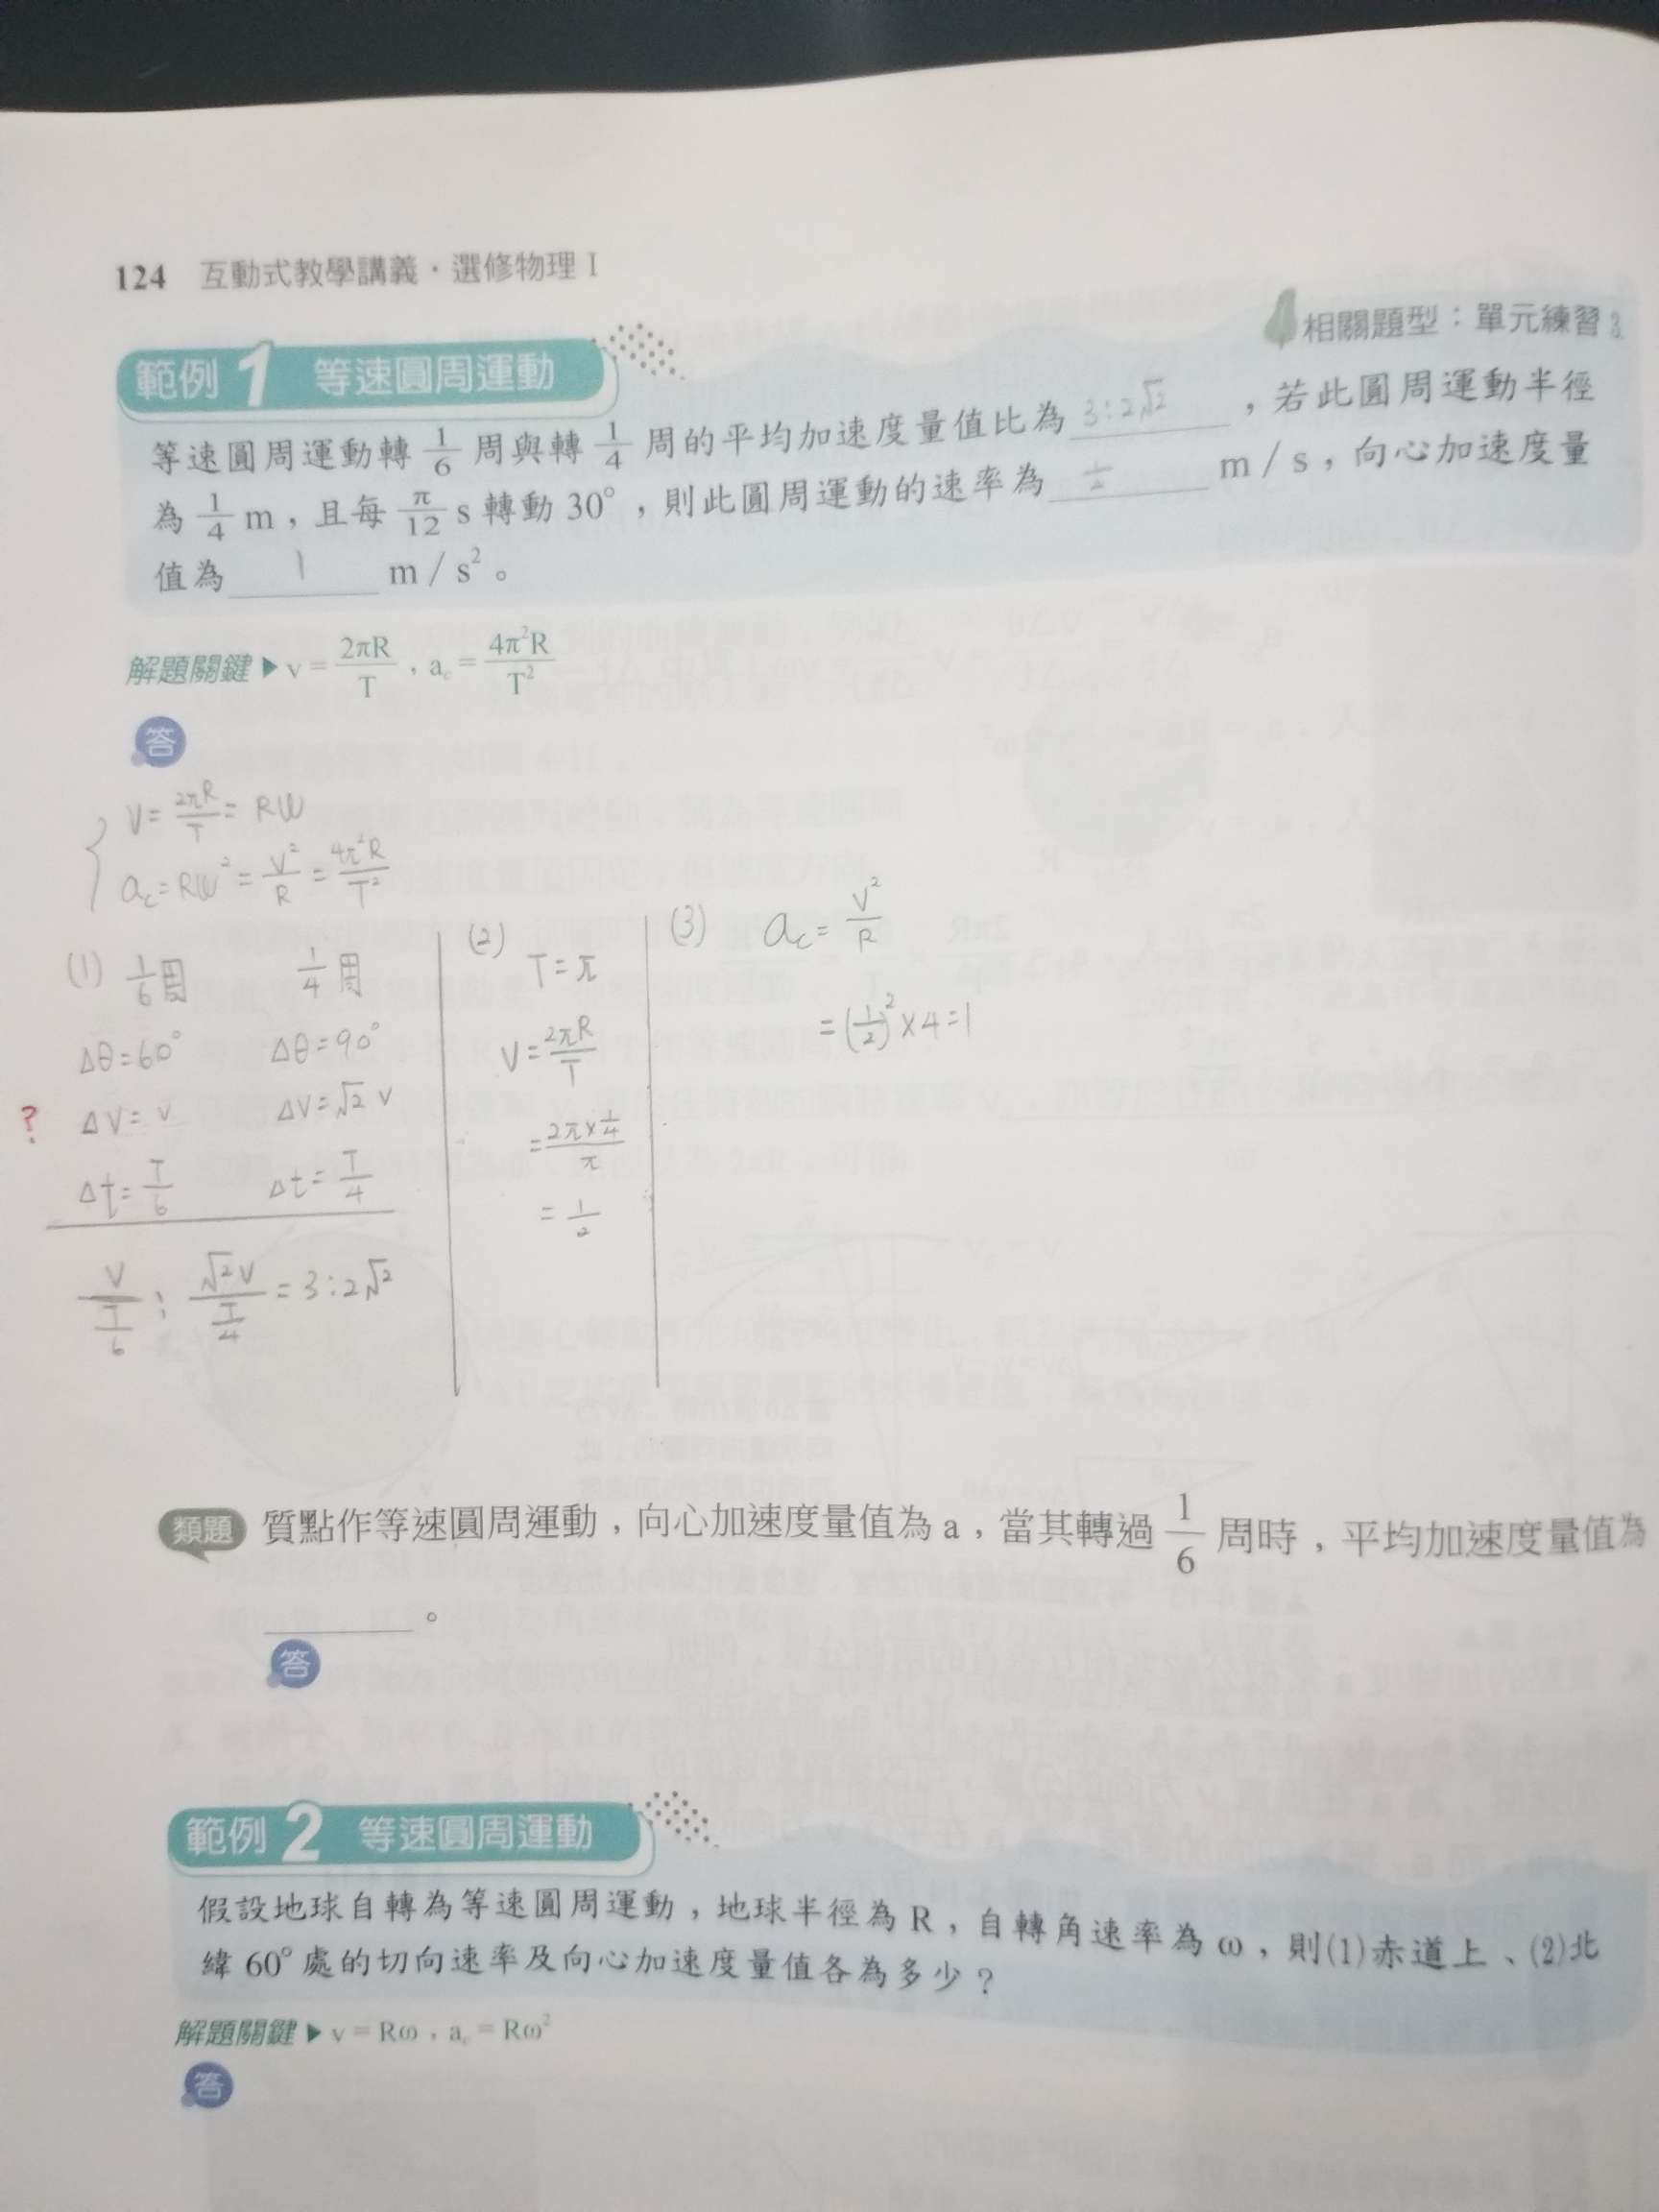 124 互動式教學講義·選修物理 I
相關題型：單元練習
範例 1 等速圓周運動
等速圓周運動轉 1/6 周與轉 1/4 周的平均加速度量值比為 3:2√2 ，若此圓周運動半徑
為 1/4 m，且每 π/12 s 轉動 30°，則此圓周運動的速率為 1/2 m / s，向心加速度量
值為 1 m / s²。
解題關鍵▶v = 2πR/T，a_c = 4π²R/T²
答
V = 2πR/T = Rω
a_c = Rω² = V²/R = 4π²R/T²
(1) 1/6 周 1/4 周
Δθ=60° Δθ=90°
? ΔV = V ΔV = √2 V
Δt = T/6 Δt = T/4
V/(T/6) : √2V/(T/4) = 3:2√2
(2) T = π
V = 2πR/T
= (2π×1/4)/π
= 1/2
(3) a_c = V²/R
= (1/2)² × 4 = 1
類題 質點作等速圓周運動，向心加速度量值為 a，當其轉過 1/6 周時，平均加速度量值為
。
答
範例 2 等速圓周運動
假設地球自轉為等速圓周運動，地球半徑為 R，自轉角速率為 ω，則(1)赤道上、(2)北
緯 60° 處的切向速率及向心加速度量值各為多少？
解題關鍵▶v = Rω，a_c = Rω²
答